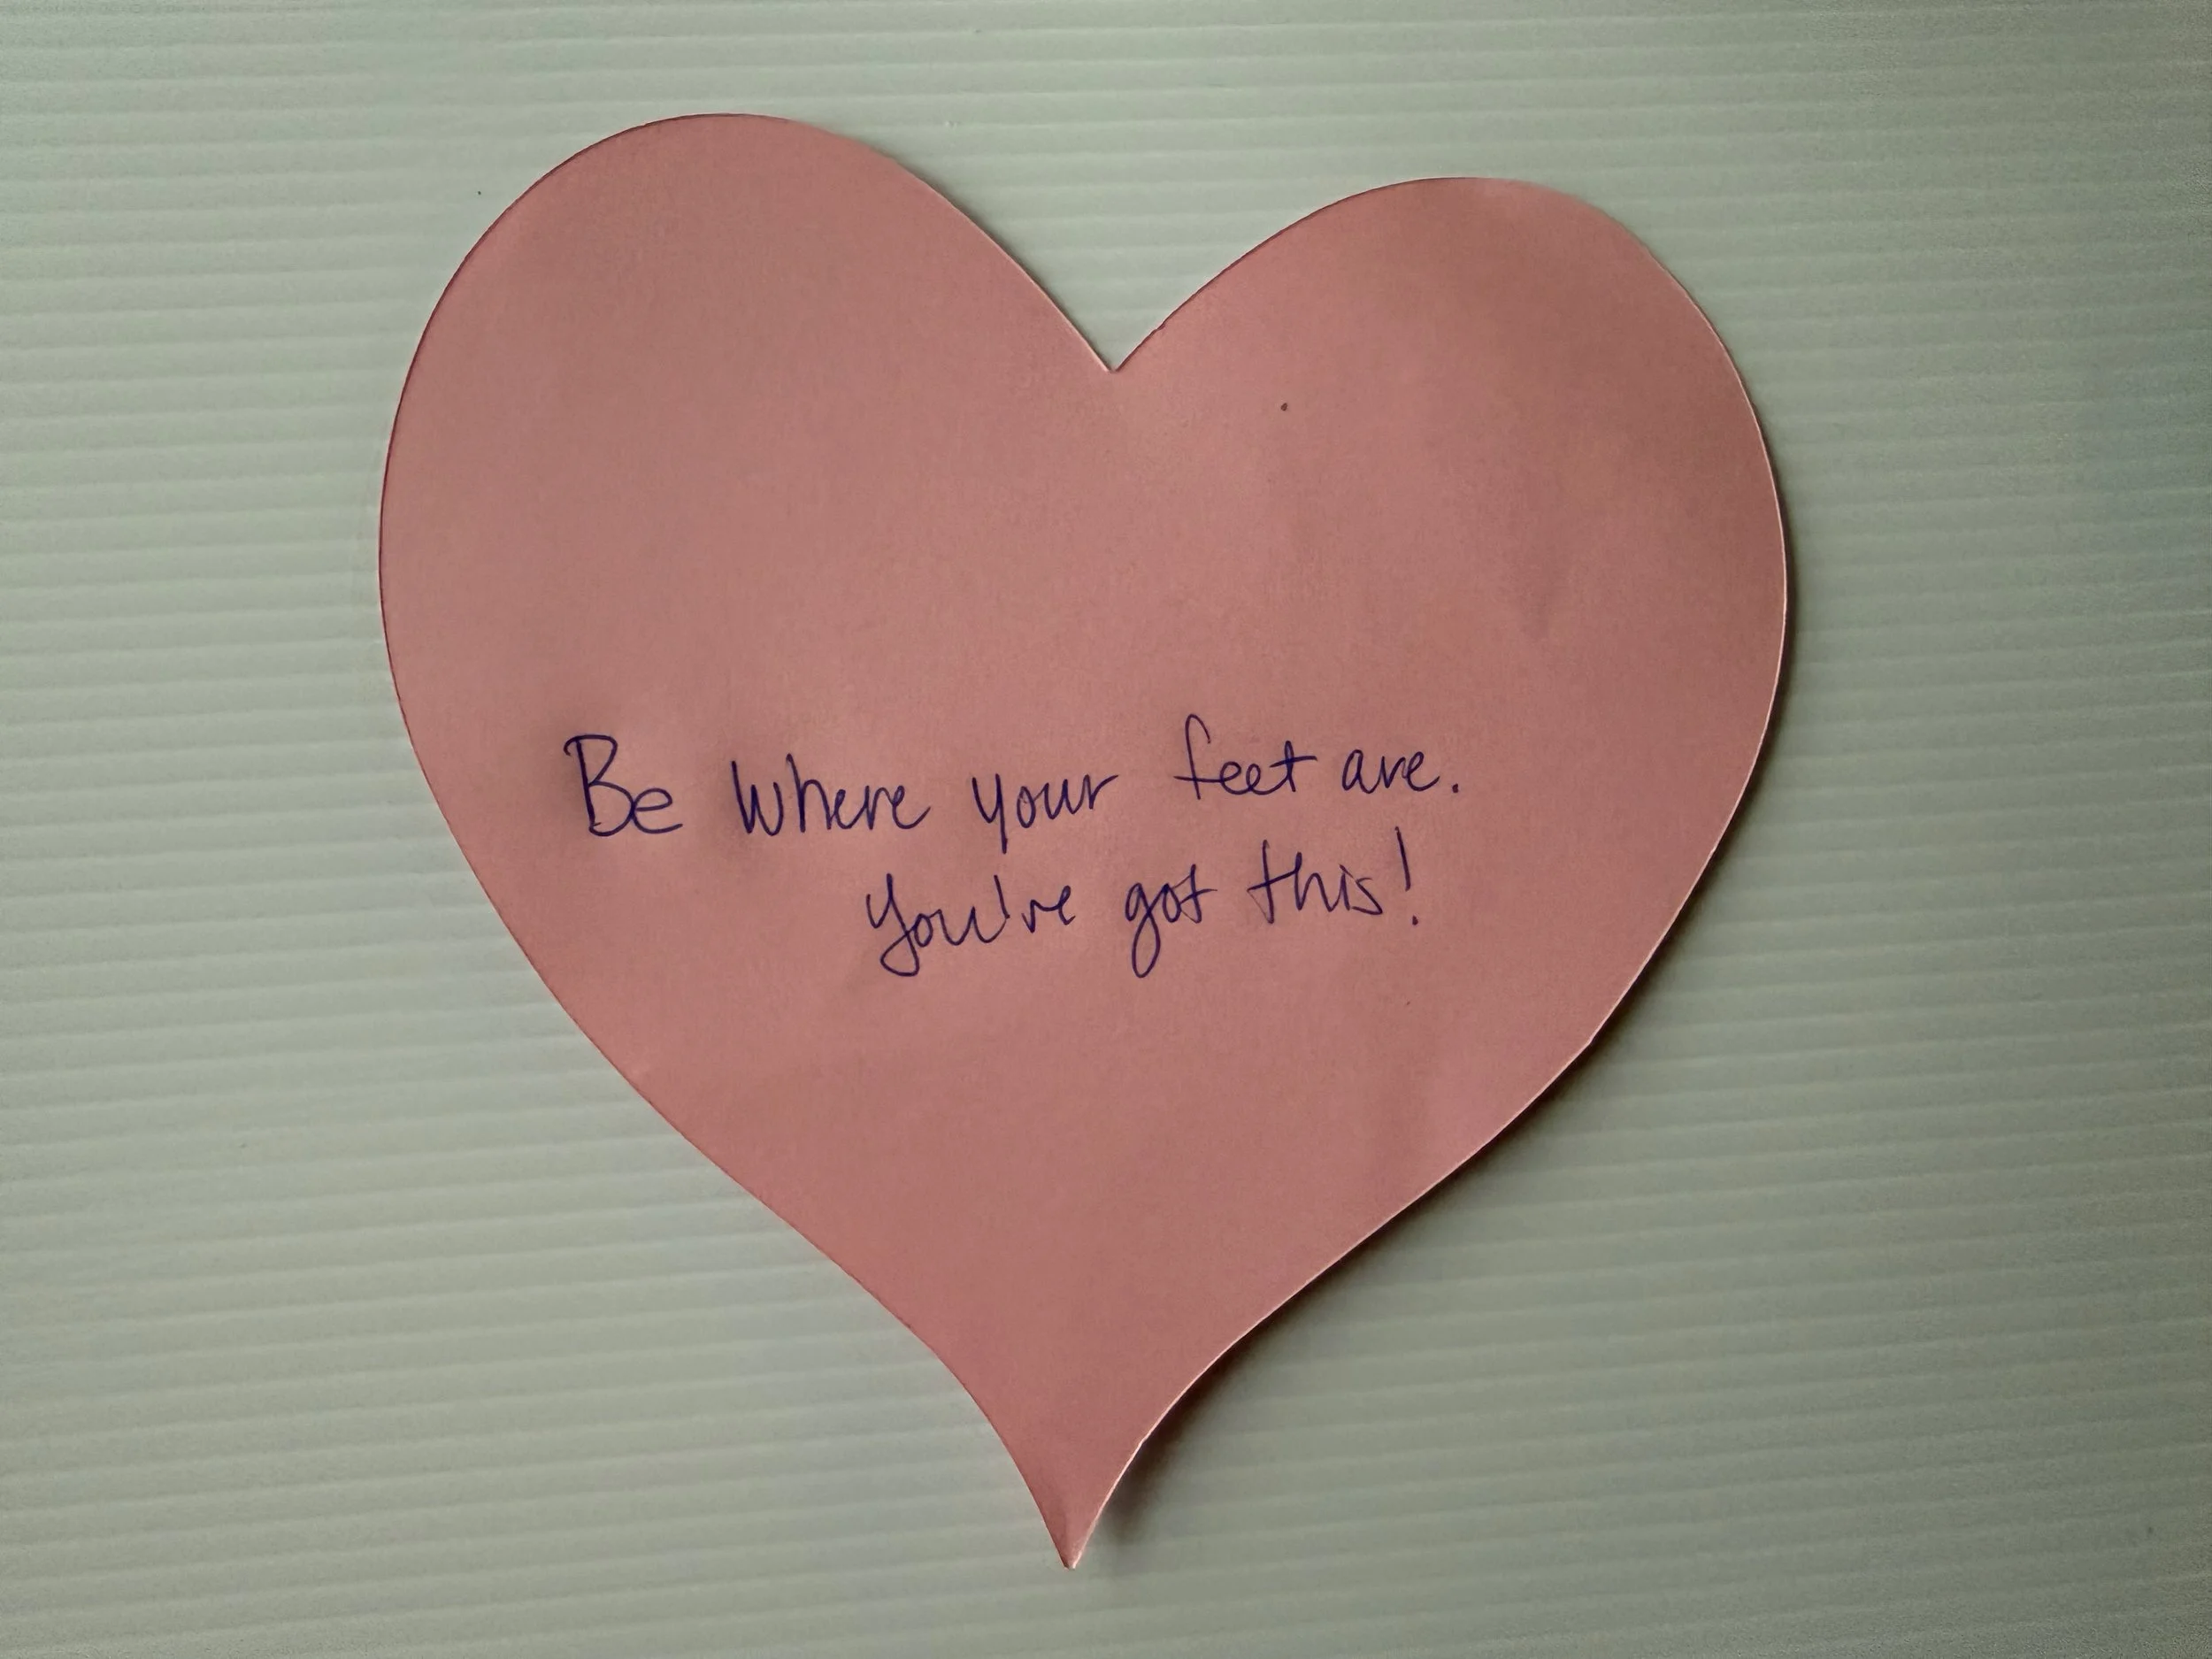 Be where your feet are.
You've got this!